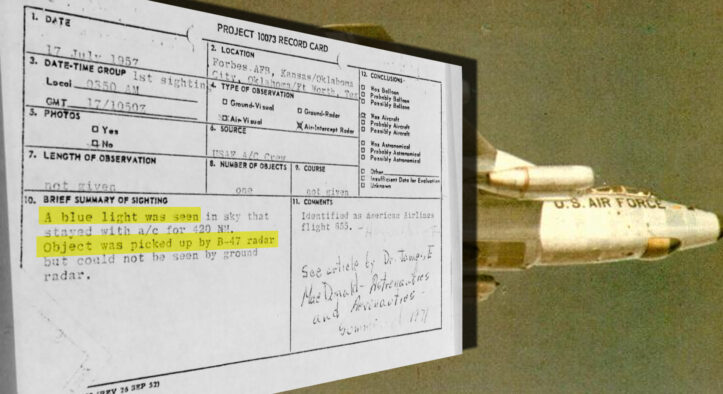 PROJECT 10073 RECORD CARD
1. DATE
17 July 1957
2. LOCATION
Forbes AFB, Kansas/Oklahoma
City, Oklahoma/Ft Worth, Tex
3. DATE-TIME GROUP 1st sighting
Local 0350 AM
GMT 17/1050Z
4. TYPE OF OBSERVATION
Ground-Visual
Ground-Radar
Air-Visual
Air-Intercept Radar
5. PHOTOS
Yes
No
6. SOURCE
USAF A/C Crew
7. LENGTH OF OBSERVATION
not given
8. NUMBER OF OBJECTS
one
9. COURSE
not given
10. BRIEF SUMMARY OF SIGHTING
A blue light was seen in sky that
stayed with a/c for 420 NM.
Object was picked up by B-47 radar
but could not be seen by ground
radar.
11. COMMENTS
Identified as American Airlines
flight 655.
See article by Dr. James E
MacDonald - Astronautics
and Aeronautics -
1971
12. CONCLUSIONS
Was Balloon
Probably Balloon
Possibly Balloon
Was Aircraft
Probably Aircraft
Possibly Aircraft
Was Astronomical
Probably Astronomical
Possibly Astronomical
Other
Insufficient Data for Evaluation
Unknown
(REV 26 SEP 52)
U.S. AIR FORCE